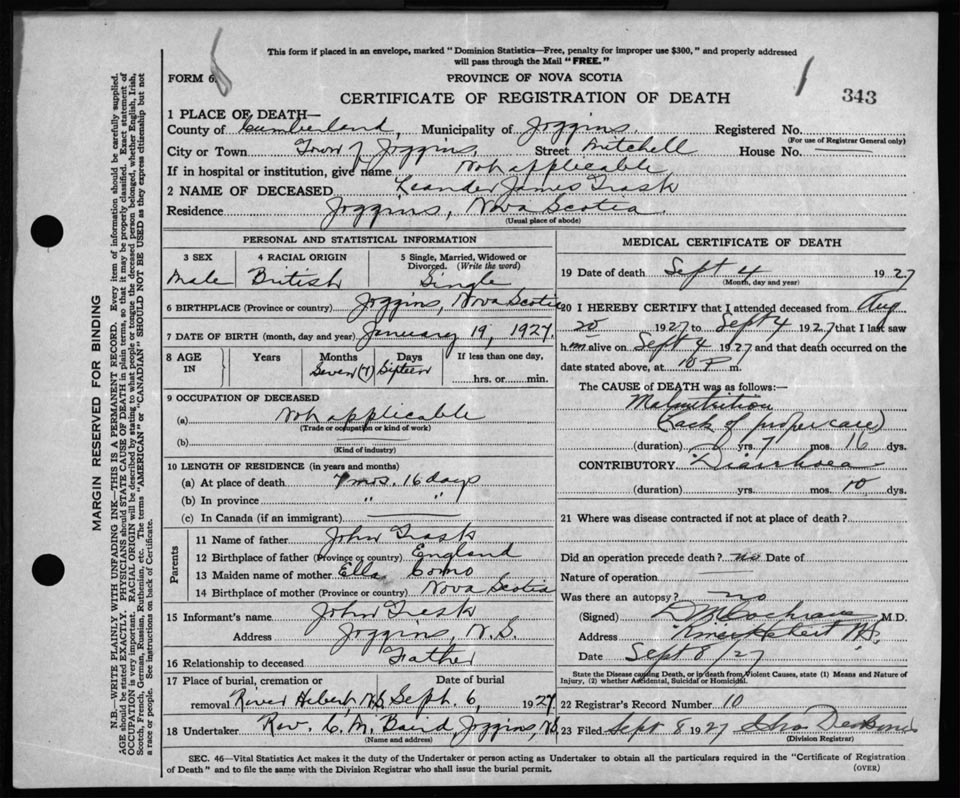 This form if placed in an envelope, marked "Dominion Statistics—Free, penalty for improper use $300," and properly addressed
will pass through the Mail "FREE."
FORM 6.
PROVINCE OF NOVA SCOTIA
CERTIFICATE OF REGISTRATION OF DEATH
343
1 PLACE OF DEATH—
County of Cumberland, Municipality of Joggins. Registered No.
(For use of Registrar General only)
City or Town Town of Joggins. Street Mitchell House No.
If in hospital or institution, give name Not applicable
2 NAME OF DECEASED Leander James Trask
Residence Joggins, Nova Scotia.
(Usual place of abode)
PERSONAL AND STATISTICAL INFORMATION
3 SEX 4 RACIAL ORIGIN 5 Single, Married, Widowed or
Divorced. (Write the word)
Male British Single
6 BIRTHPLACE (Province or country) Joggins, Nova Scotia
7 DATE OF BIRTH (month, day and year) January 19, 1927.
8 AGE IN Years Months Days If less than one day,
Seven (7) Sixteen hrs. or min.
9 OCCUPATION OF DECEASED
(a) Not applicable
(Trade or occupation or kind of work)
(b)
(Kind of industry)
10 LENGTH OF RESIDENCE (in years and months)
(a) At place of death 7 mos. 16 days
(b) In province " "
(c) In Canada (if an immigrant)
Parents
11 Name of father John Trask
12 Birthplace of father (Province or country) England
13 Maiden name of mother Ella Como
14 Birthplace of mother (Province or country) Nova Scotia
15 Informant's name John Trask
Address Joggins, N.S.
16 Relationship to deceased Father
17 Place of burial, cremation or Date of burial
removal River Hebert, N.S. Sept. 6, 1927
18 Undertaker Rev. C. M. Baird, Joggins, N.S.
(Name and address)
MEDICAL CERTIFICATE OF DEATH
19 Date of death Sept 4 1927
(Month, day and year)
20 I HEREBY CERTIFY that I attended deceased from Aug
20 1927 to Sept 4 1927 that I last saw
him alive on Sept 4 1927 and that death occurred on the
date stated above, at 10 P m.
The CAUSE of DEATH was as follows:—
Malnutrition
(Lack of proper care)
(duration) yrs. 7 mos. 16 dys.
CONTRIBUTORY Diarrhoea
(duration) yrs. mos. 10 dys.
21 Where was disease contracted if not at place of death?
Did an operation precede death? no Date of
Nature of operation
Was there an autopsy? no
(Signed) Cochrane M.D.
Address River Hebert N.S.
Date Sept 8/27
State the Disease causing Death, or in death from Violent Causes, state (1) Means and Nature of
Injury, (2) whether Accidental, Suicidal or Homicidal.
22 Registrar's Record Number 10
23 Filed Sept 8 1927
(Division Registrar)
SEC. 46—Vital Statistics Act makes it the duty of the Undertaker or person acting as Undertaker to obtain all the particulars required in the "Certificate of Registration
of Death" and to file the same with the Division Registrar who shall issue the burial permit.
(OVER)
MARGIN RESERVED FOR BINDING
N.B.—WRITE PLAINLY WITH UNFADING INK—THIS IS A PERMANENT RECORD. Every item of information should be carefully supplied.
AGE should be stated EXACTLY. PHYSICIANS should STATE CAUSE OF DEATH in plain terms, so that it may be properly classified. Exact statement of
OCCUPATION is very important. RACIAL ORIGIN will be described by stating to what people or tongue the deceased person belonged, whether English, Irish,
Scotch, French, German, Russian, Ruthenian, etc. The terms "AMERICAN" or "CANADIAN" SHOULD NOT BE USED as they express citizenship but not
a race or people. See instructions on back of Certificate.